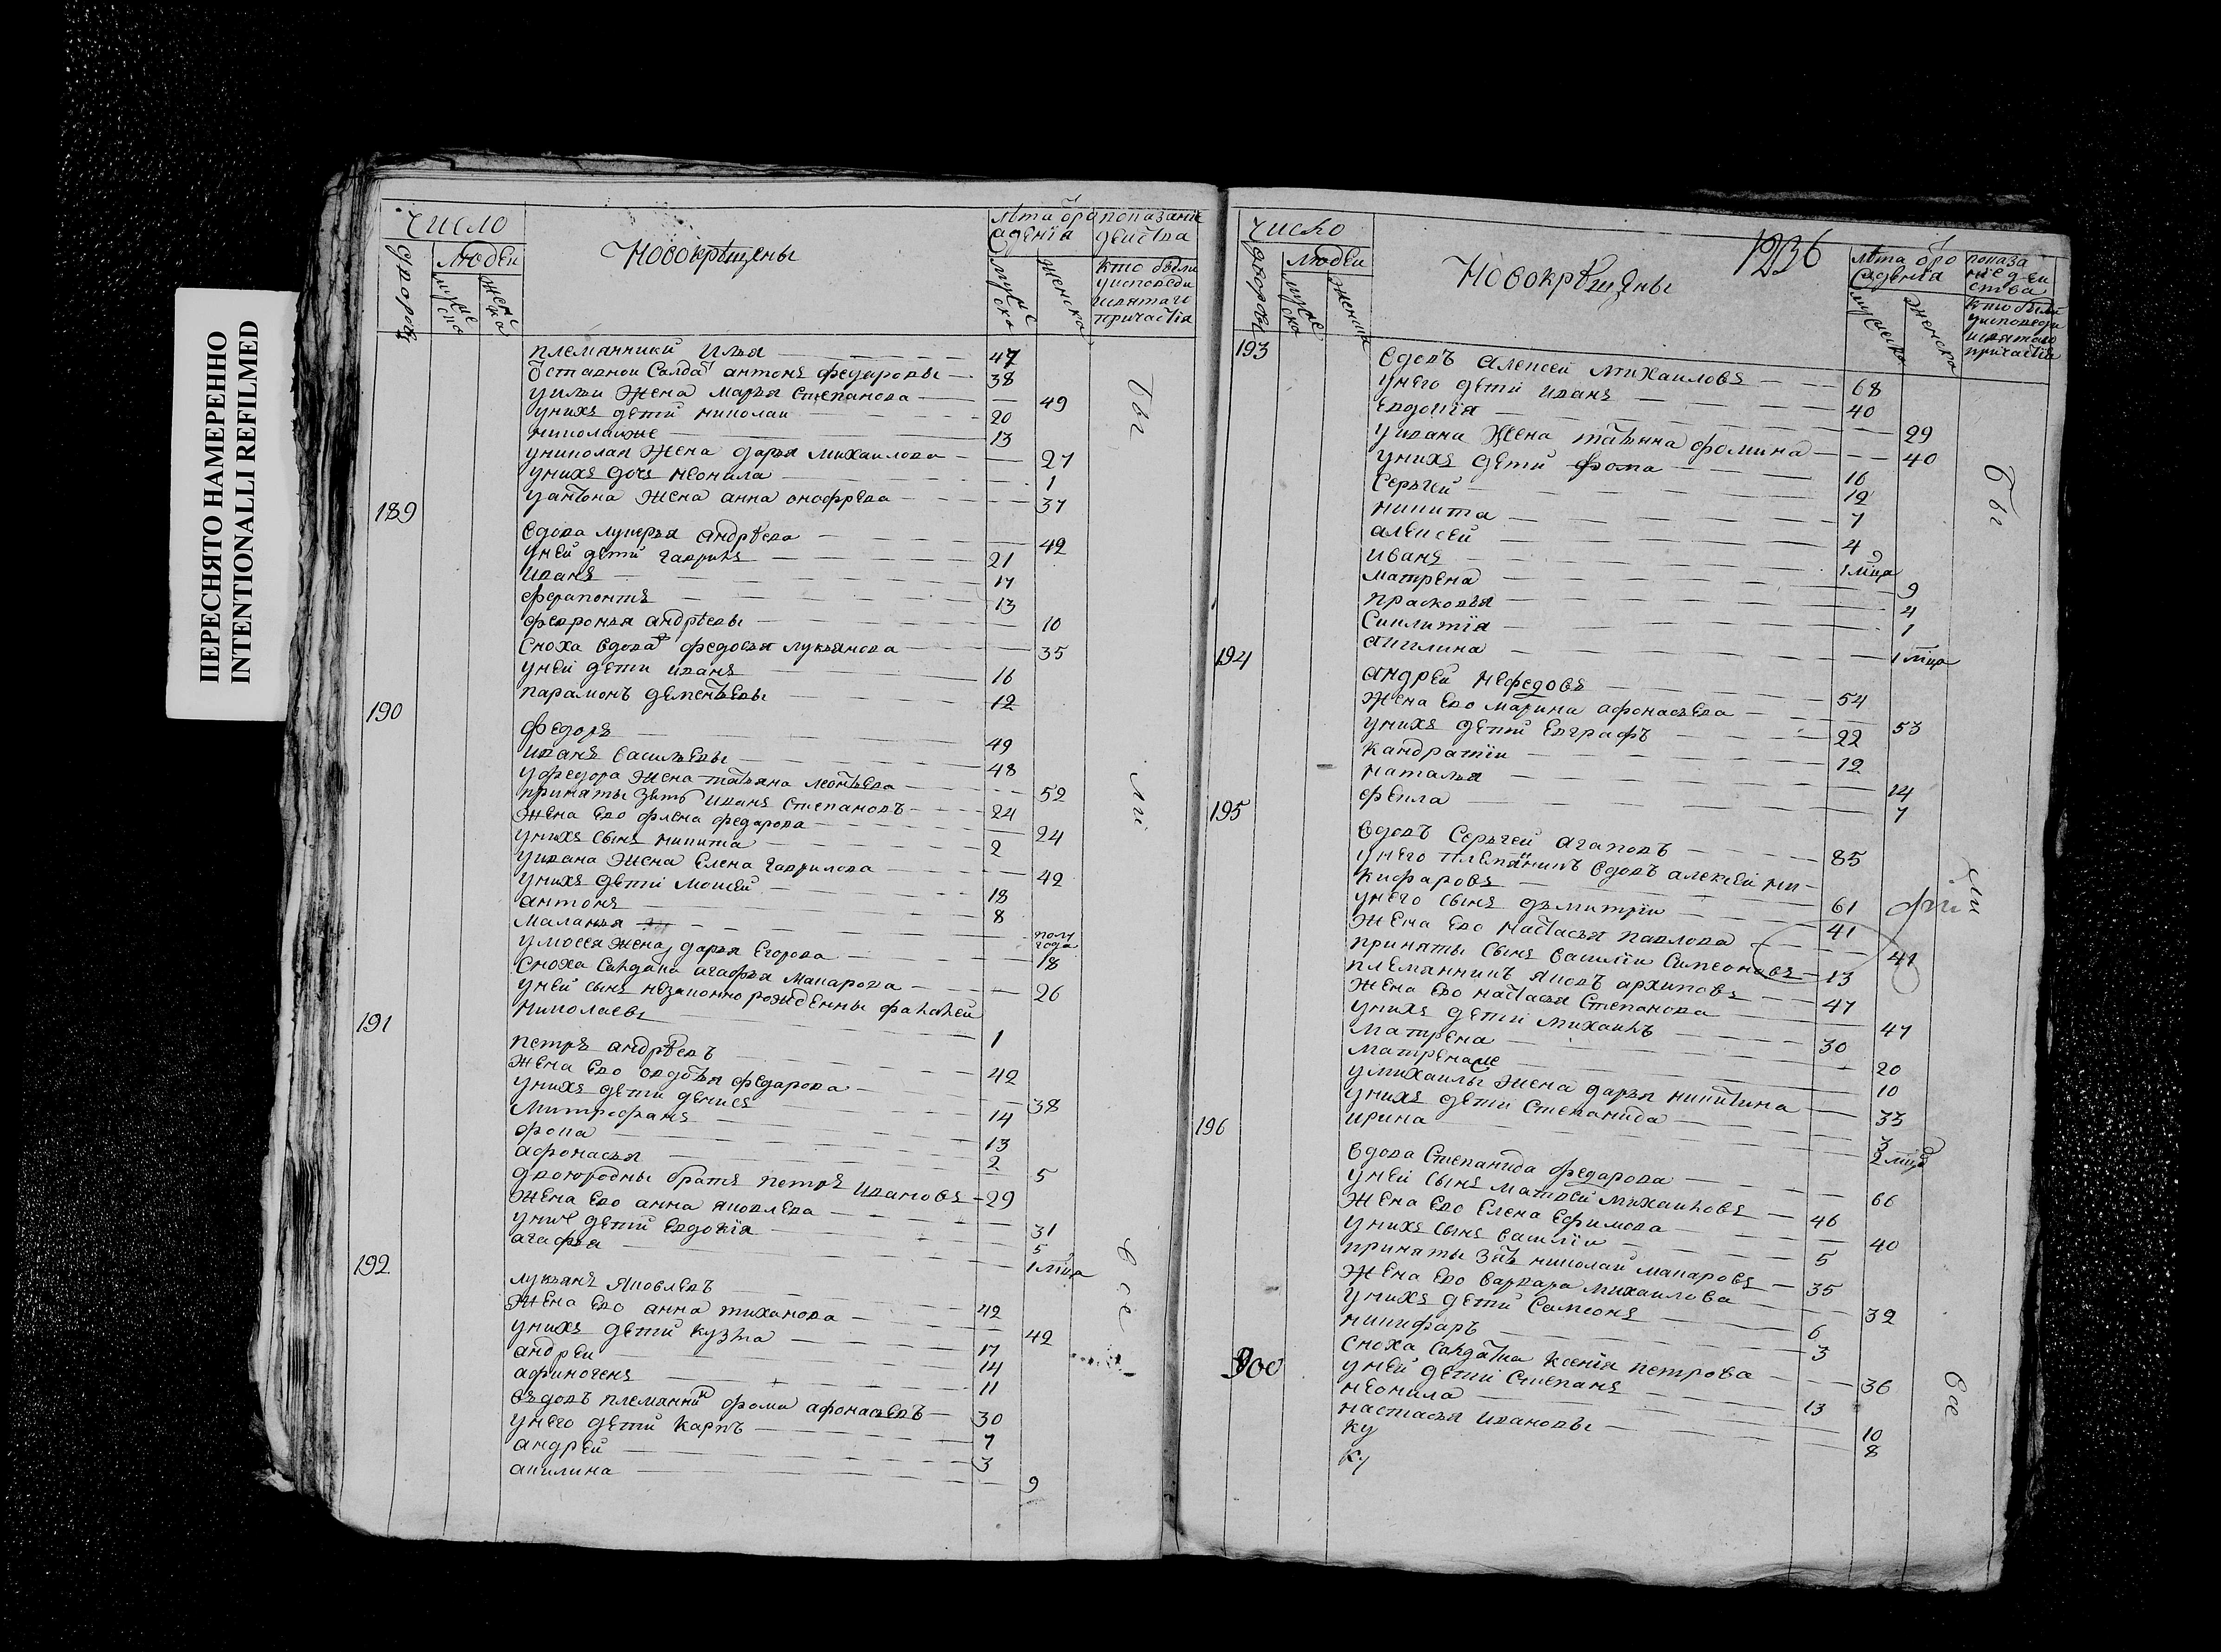 ПЕРЕСНЯТО НАМЕРЕННО
INTENTIONALLI REFILMED
число
дворовъ
Людеи
мужеска
женска
Новокрѣщены
лѣта ѿ рождения
мужеска
женска
показание действа
кто были
у исповеди
и святаго
причастїя
племянники Илья 47
ѿставнои Салдатъ антонъ федоровы 38
у ильи жена марья Степанова 49
у нихъ дети николаи 20
николаиже 13
у николая жена дарья михаилова 27
у нихъ дочь неонила 1
у антона жена анна онофрева 37
189
вдова лукерья андрѣева 42
у неи дети гаврилъ 21
иванъ 17
ферапонтъ 13
февронья андрѣевы 10
сноха вдова федосья лукьянова 35
у неи дети иванъ 16
парамонъ дементьевы 12
190
федоръ 49
иванъ васильевы 48
у федора жена татьяна леонтьева 52
приняты зять иванъ степановъ 24
жена ево флена федарова 24
у нихъ сынъ никита 2
у ивана жена елена гаврилова 42
у нихъ дети моисеи 18
антонъ 8
маланья полу года
у мосея жена дарья егорова 18
сноха салдатка агафья макарова 26
у неи сынъ незаконно рожденны фалалеи
николаевъ 1
191
петръ андрѣевъ 42
жена ево овдотья федарова 38
у нихъ дети денисъ 14
митрофанъ 13
фока 2
афонасья 5
двоюродны братъ петръ ивановъ 29
жена ево анна яковлева 31
у них дети евдокїя 5
агафья 1 мца
192
лукьянъ яковлевъ 42
жена ево анна тиханова 42
у нихъ дети кузма 17
андреи 14
афиногенъ 11
въдовъ племянник фома афонасьевъ 30
у него дети карпъ 7
андреи 3
акилина 9
бы
ли
все
1236
число
дворовъ
людеи
мужеска
женска
Новокрѣщены
лѣта ѿ рождения
мужеска
женска
показание действа
кто были
у исповеди
и святаго
причастїя
193
вдовъ алексеи михаиловъ 68
у него дети иванъ 40
евдокїя 29
у ивана жена татьяна фомина 40
у нихъ дети фома 16
сергеи 12
никита 7
алексеи 4
иванъ 1 мца
матрена 9
прасковья 4
синлитїя 1
акилина 1 мца
194
андреи нефедовъ 54
жена ево марина афонасьева 53
у нихъ дети евграфъ 22
кандратїи 12
наталья 14
фекла 7
195
вдовъ сергеи агаповъ 85
у него племянникъ вдовъ алексеи ни-
кифаровъ 61
у него сынъ дъмитрїи 41
жена ево настасья павлова 41
приняты сынъ василїи симеоновъ 13
племянникъ яковъ архиповъ 47
жена ево настасья степанова 47
у нихъ дети михаилъ 30
матрена 20
матренаже 10
у михаилы жена дарья никитина 33
у нихъ дети степанида 3
ирина 2 мца
196
вдова степанида федарова 66
у неи сынъ матвеи михаиловъ 46
жена ево елена ефимова 40
у нихъ сынъ василїи 5
приняты зять николаи макаровъ 35
жена ево варвара михаилова 32
у нихъ дети самсонъ 6
никифаръ 3
сноха салдатка ксенїя петрова 36
у неи дети степанъ 13
неонила 10
настасья ивановы 8
ку
ку
бы
ли
все